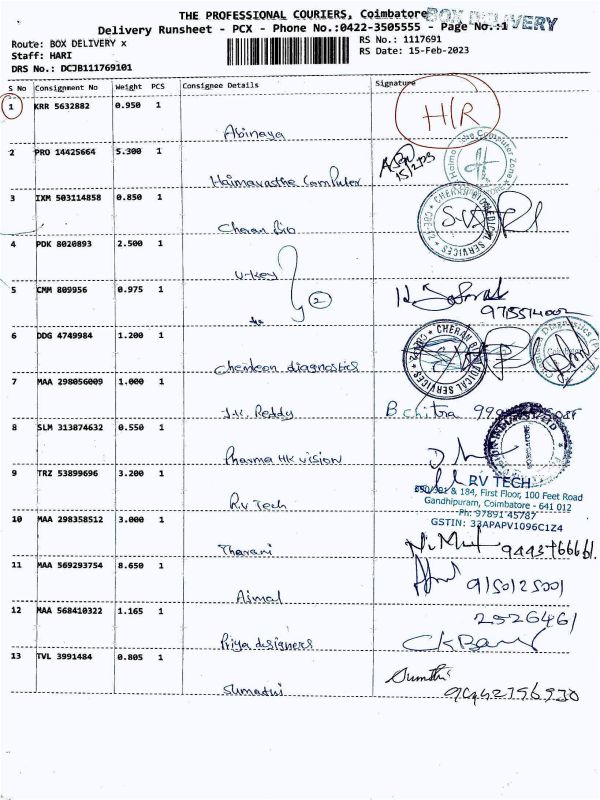 THE PROFESSIONAL COURIERS, Coimbatore
BOX DELIVERY
Delivery Runsheet - PCX - Phone No.:0422-3505555 - Page No.:1
Route: BOX DELIVERY x
RS No.: 1117691
Staff: HARI
RS Date: 15-Feb-2023
DRS No.: DCJB111769101
S No Consignment No Weight PCS Consignee Details Signature
1 KRR 5632882 0.950 1
H/R
Abinaya
2 PRO 14425664 5.300 1
Haimavathe Computer
3 IXM 503114858 0.850 1
Cheran Bio
4 PDK 8020893 2.500 1
U-key
5 CMM 809956 0.975 1
2
6 DDG 4749984 1.200 1
CHERAN BIOMEDICAL SERVICES
diagnostics
7 MAA 298056009 1.000 1
J.K. Reddy B.chitra
8 SLM 313874632 0.550 1
Pharma HK vision
9 TRZ 53899696 3.200 1
RV TECH
& 184, First Floor, 100 Feet Road
Gandhipuram, Coimbatore - 641 012
Ph: 97891 45787
R.V Tech
GSTIN: 33APAPV1096C1Z4
10 MAA 298358512 3.000 1
Tharani
11 MAA 569293754 8.650 1
Ajmal
12 MAA 568410322 1.165 1
2526461
Priya designers
13 TVL 3991484 0.805 1
Sumathi
Sumathi